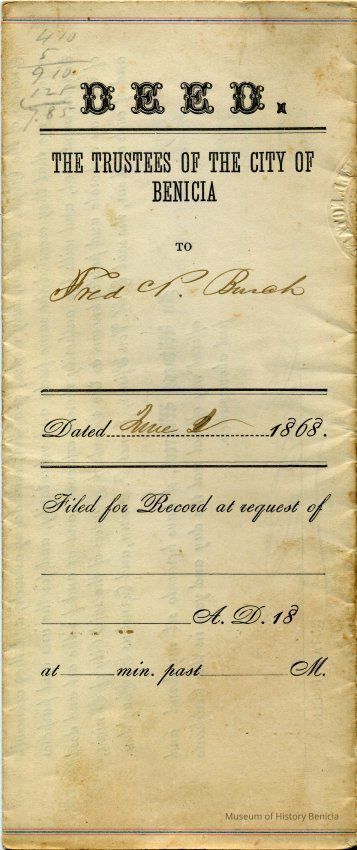 4 10
5
9 10
1 25
7.85
DEED.
THE TRUSTEES OF THE CITY OF
BENICIA
TO
Fred N. Busch
Dated June 1868.
Filed for Record at request of
A. D. 18
at min. past M.
Museum of History Benicia